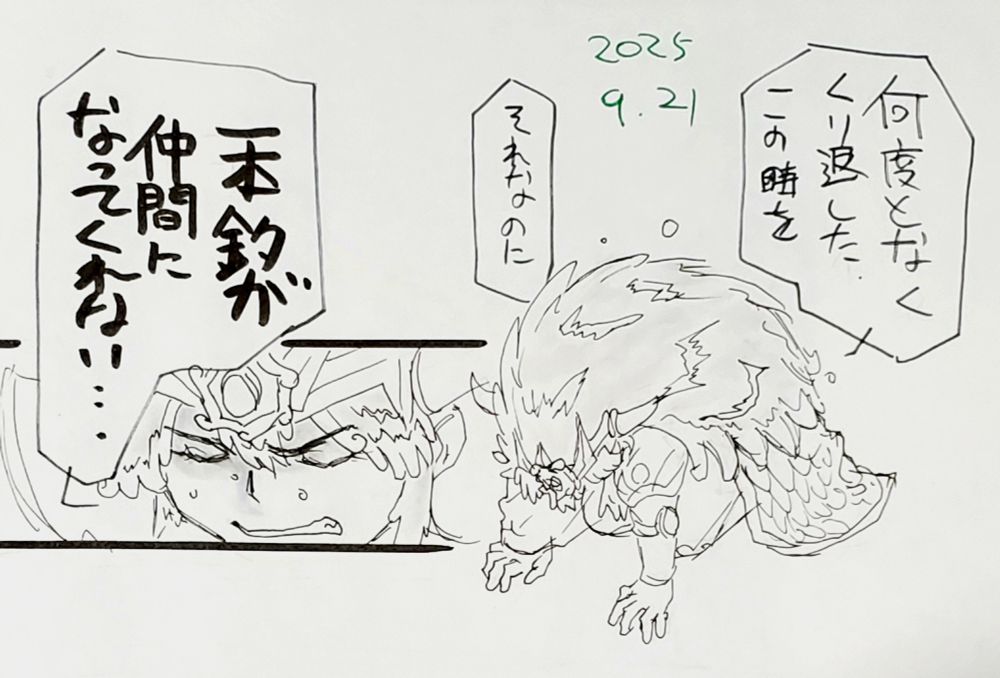 2025
9.21
何度となく
くり返した
この時を
それなのに
一本釣が
仲間に
なってくれない…